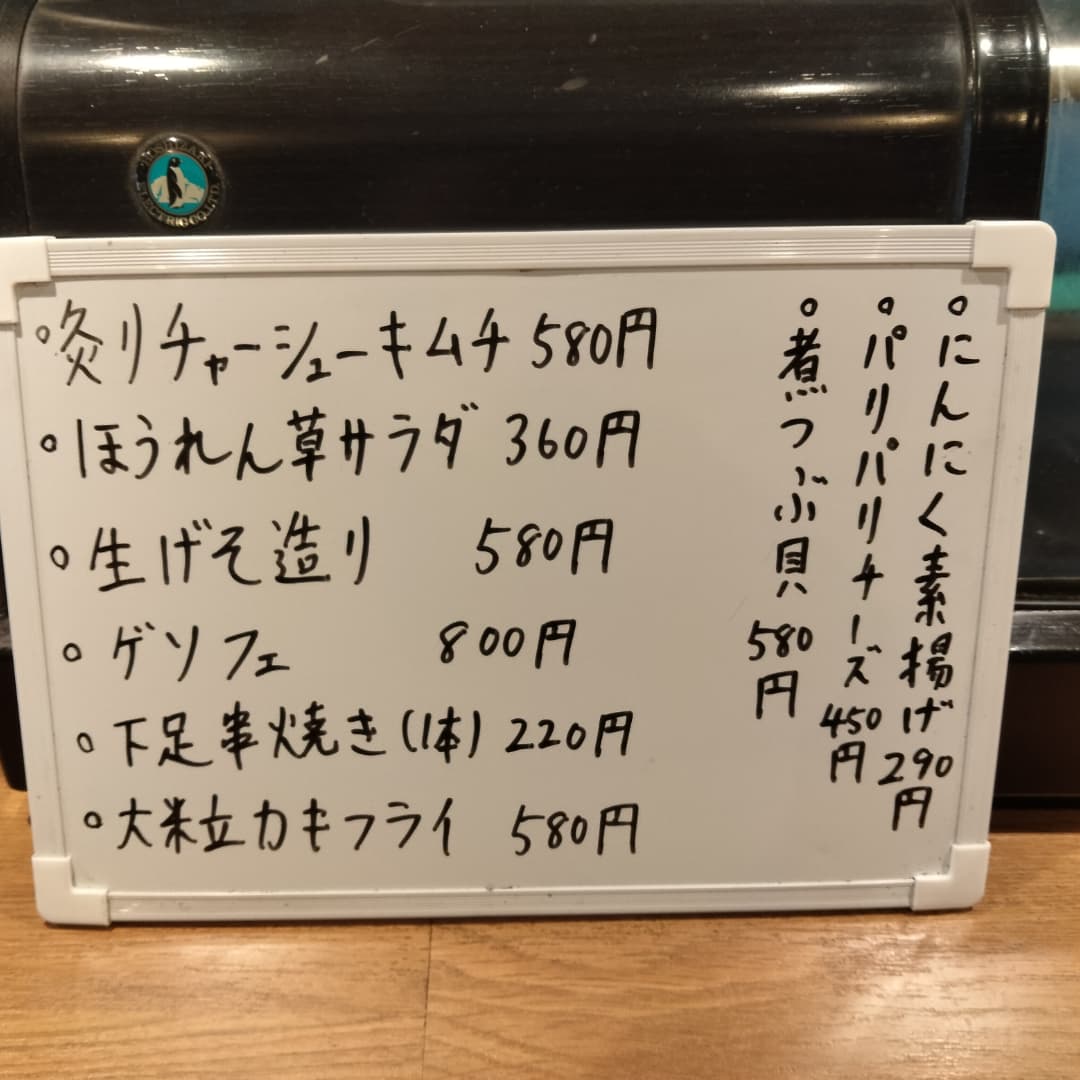 HOSHIZAKI ELECTRIC CO., LTD.
◦炙りチャーシューキムチ 580円
◦ほうれん草サラダ 360円
◦生げそ造り 580円
◦ゲソフェ 800円
◦下足串焼き(1本) 220円
◦大粒カキフライ 580円
◦にんにく素揚げ 290円
◦パリパリチーズ 450円
◦煮つぶ貝 580円